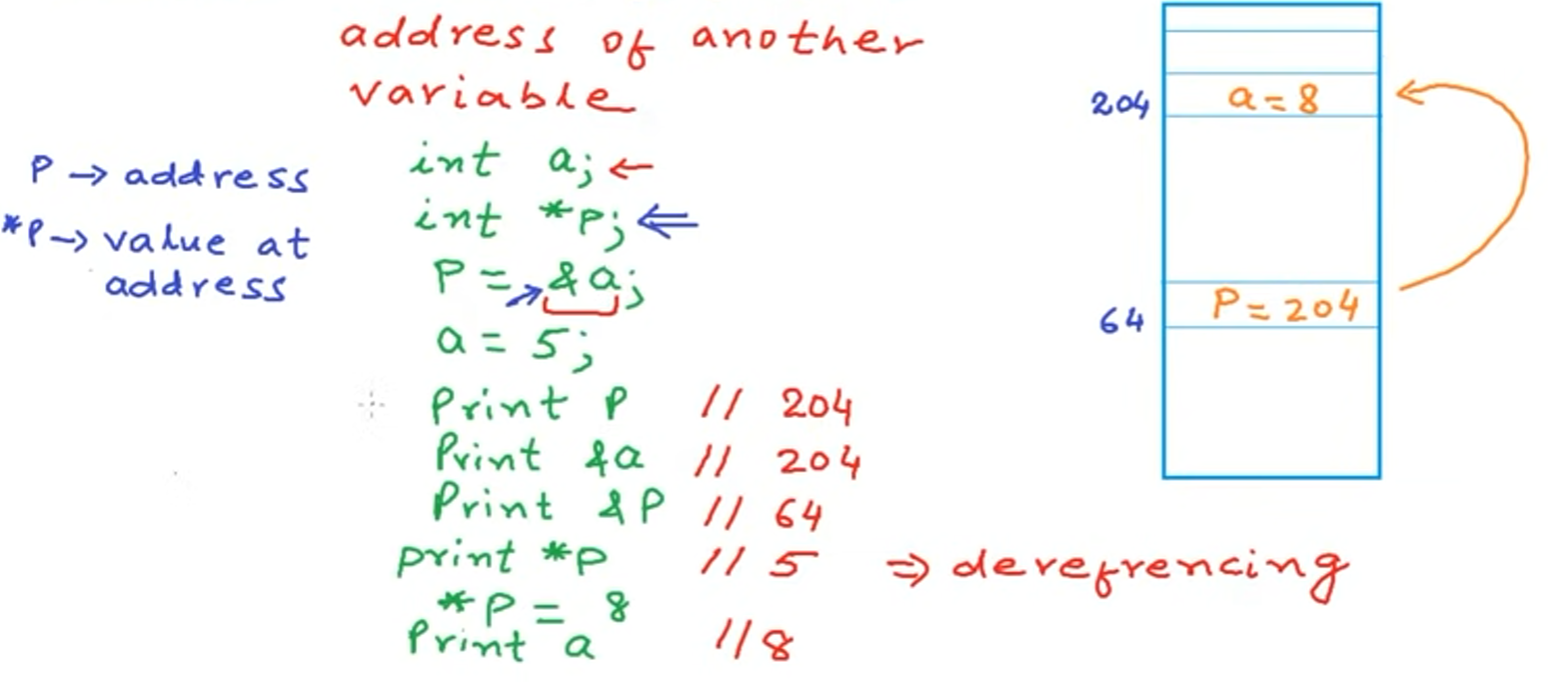 address of another
variable
P → address
*P → value at
address
int a; ←
int *P; ⇐
P = → &a;
a = 5;
Print P // 204
Print &a // 204
Print &P // 64
print *p // 5 ⇒ derefrencing
*P = 8
Print a // 8
204
a = 8
64
P = 204